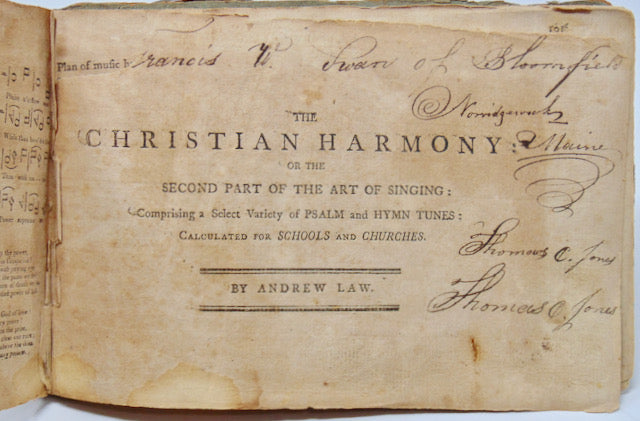 Plan of music b Francis W. Swan of Bloomfield
Norridgewock
Maine
THE
CHRISTIAN HARMONY:
OR THE
SECOND PART OF THE ART OF SINGING:
Comprising a Select Variety of PSALM and HYMN TUNES:
CALCULATED FOR SCHOOLS AND CHURCHES.
Thomas C. Jones
BY ANDREW LAW.
Thomas C. Jones